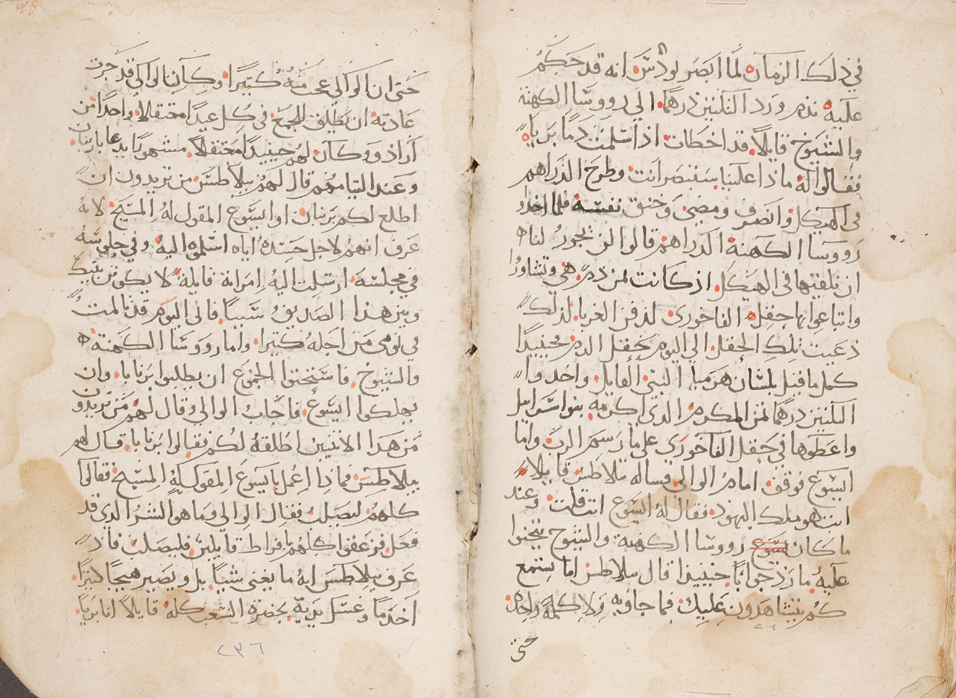 في ذلك الزمان لما ابصر يودس انه قد حكم
عليه ندم ورد الثلثين درهما الي رووسا الكهنة
والشيوخ قايلا قد اخطات اذ اسلمت دما بريا
فقالوا له ماذا علينا ستنصر انت وطرح الدراهم
في الهيكل وانصرف ومضي وخنق نفسه فلما اخذ
رووسا الكهنة الدراهم قالوا لن يجوز لنا
ان نلقيها في الهيكل اذ كانت ثمن دم هي وتشاوروا
وابتاعوا بها حقل الفاخوري لدفن الغربا لذلك
دعيت تلك الحقل الي اليوم حقل الدم حينيذ
كمل ما قيل بلسان هرميا النبي القايل واخذوا
الثلثين درهما ثمن المكرم الذي اكرمه بنوا اسرايل
واعطوها في حقل الفاخوري علي ما رسم الرب واما
ايسوع فوقف امام الوالي فساله بيلاطس قايلا
انت هو ملك اليهود فقال له ايسوع انت قلت وعند
ما كان رووسا الكهنة والشيوخ يتجنوا
عليه ما رد جوابا حينيذ قال بيلاطس اما تستمع
كم يتشاهدون عليك فما جاوبه ولا كلمة واحدة
حتى
حتي ان الوالي عجب منه كثيرا وكان الوالي قد جرت
عادته ان يطلق للجمع في كل عيد معتقلا واحدا من
ارادو وكان لهم حينيذ معتقلا مشهورا يدعا بارنبان
وعند التيامهم قال لهم بيلاطس من تريدون ان
اطلع لكم برنبان او ايسوع المقول له المسيح لانه
عرف انهم لاجل حسده اياه اسلموه اليه وفي جلوسه
في مجلسه ارسلت اليه امراته قايلة لا يكون بينك
وبين هذا الصديق شيا فاني اليوم قد تالمت
في نومي من اجله كثيرا واما رووسا الكهنة
والشيوخ فاستحثوا الجموع ان يطلبوا برنابا وان
يهلكوا ايسوع فاجاب الوالي وقال لهم من تريدون
من هذا الاثنين اطلقه لكم فقالوا برنابا قال لهم
بيلاطس فماذا اعمل بايسوع المقول له المسيح فقالوا
كلهم ليصلب فقال الوالي وما هو الشر الذي قد
فعل فزعقوا كلهم بافراط قايلين فليصلب فاذ
عرف بيلاطس انه ما يغني شيا بل ويصير هيجا كثيرا
اخذ ما وغسل يديه بحضرة الشعب كله قايلا انا بريا
٢٣٦